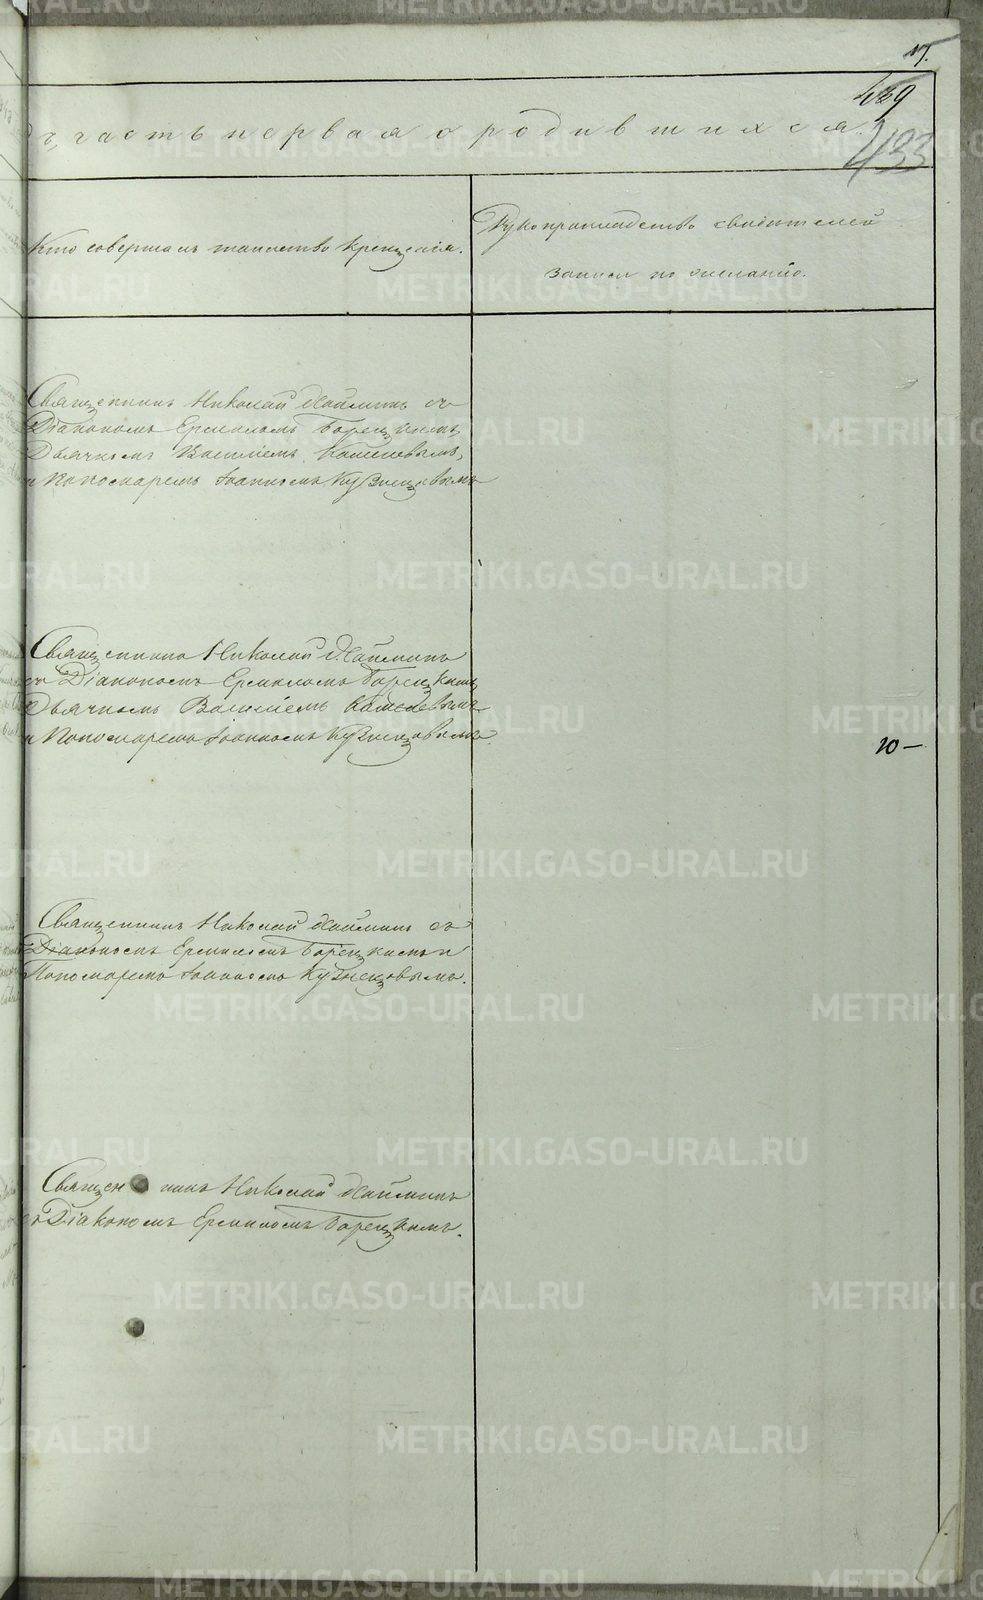 17.
439
433
часть первая о родившихся.
Кто совершалъ таинство крещенія.
Рукоприкладство свидѣтелей
записи по желанію.
Священникъ Николай съ
Діакономъ Ермиломъ Борецкимъ,
Дьячкомъ Василіемъ
и Пономаремъ Іоанномъ Кузнецовымъ
Священникъ Николай
съ Діакономъ Ермиломъ Борецкимъ
Дьячкомъ Василіемъ
и Пономаремъ Іоанномъ Кузнецовымъ.
10—
Священникъ Николай съ
Діакономъ Ермиломъ Борецкимъ и
Пономаремъ Іоанномъ Кузнецовымъ.
Священникъ Николай
съ Діакономъ Ермиломъ Борецкимъ.
METRIKI.GASO-URAL.RU